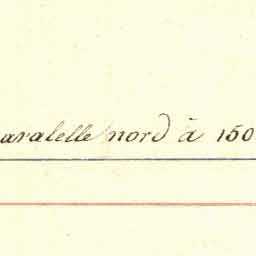 aralelle nord à 150